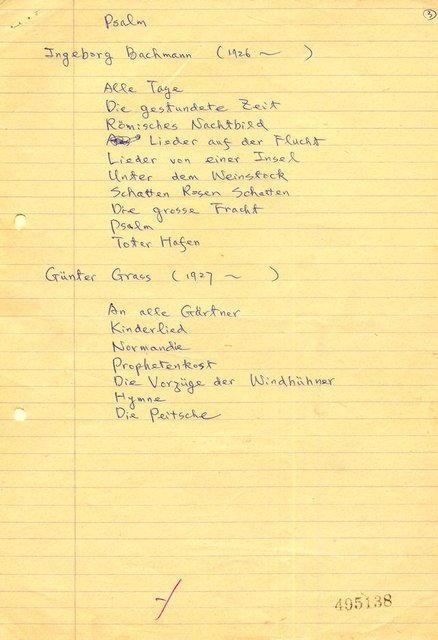 ③
Psalm
Ingeborg Bachmann (1926 ~ )
Alle Tage
Die gestundete Zeit
Römisches Nachtbild
Lieder auf der Flucht
Lieder von einer Insel
Unter dem Weinstock
Schatten Rosen Schatten
Die grosse Fracht
Psalm
Toter Hafen
Günter Grass (1927 ~ )
An alle Gärtner
Kinderlied
Normandie
Prophetenkost
Die Vorzüge der Windhühner
Hymne
Die Peitsche
495138